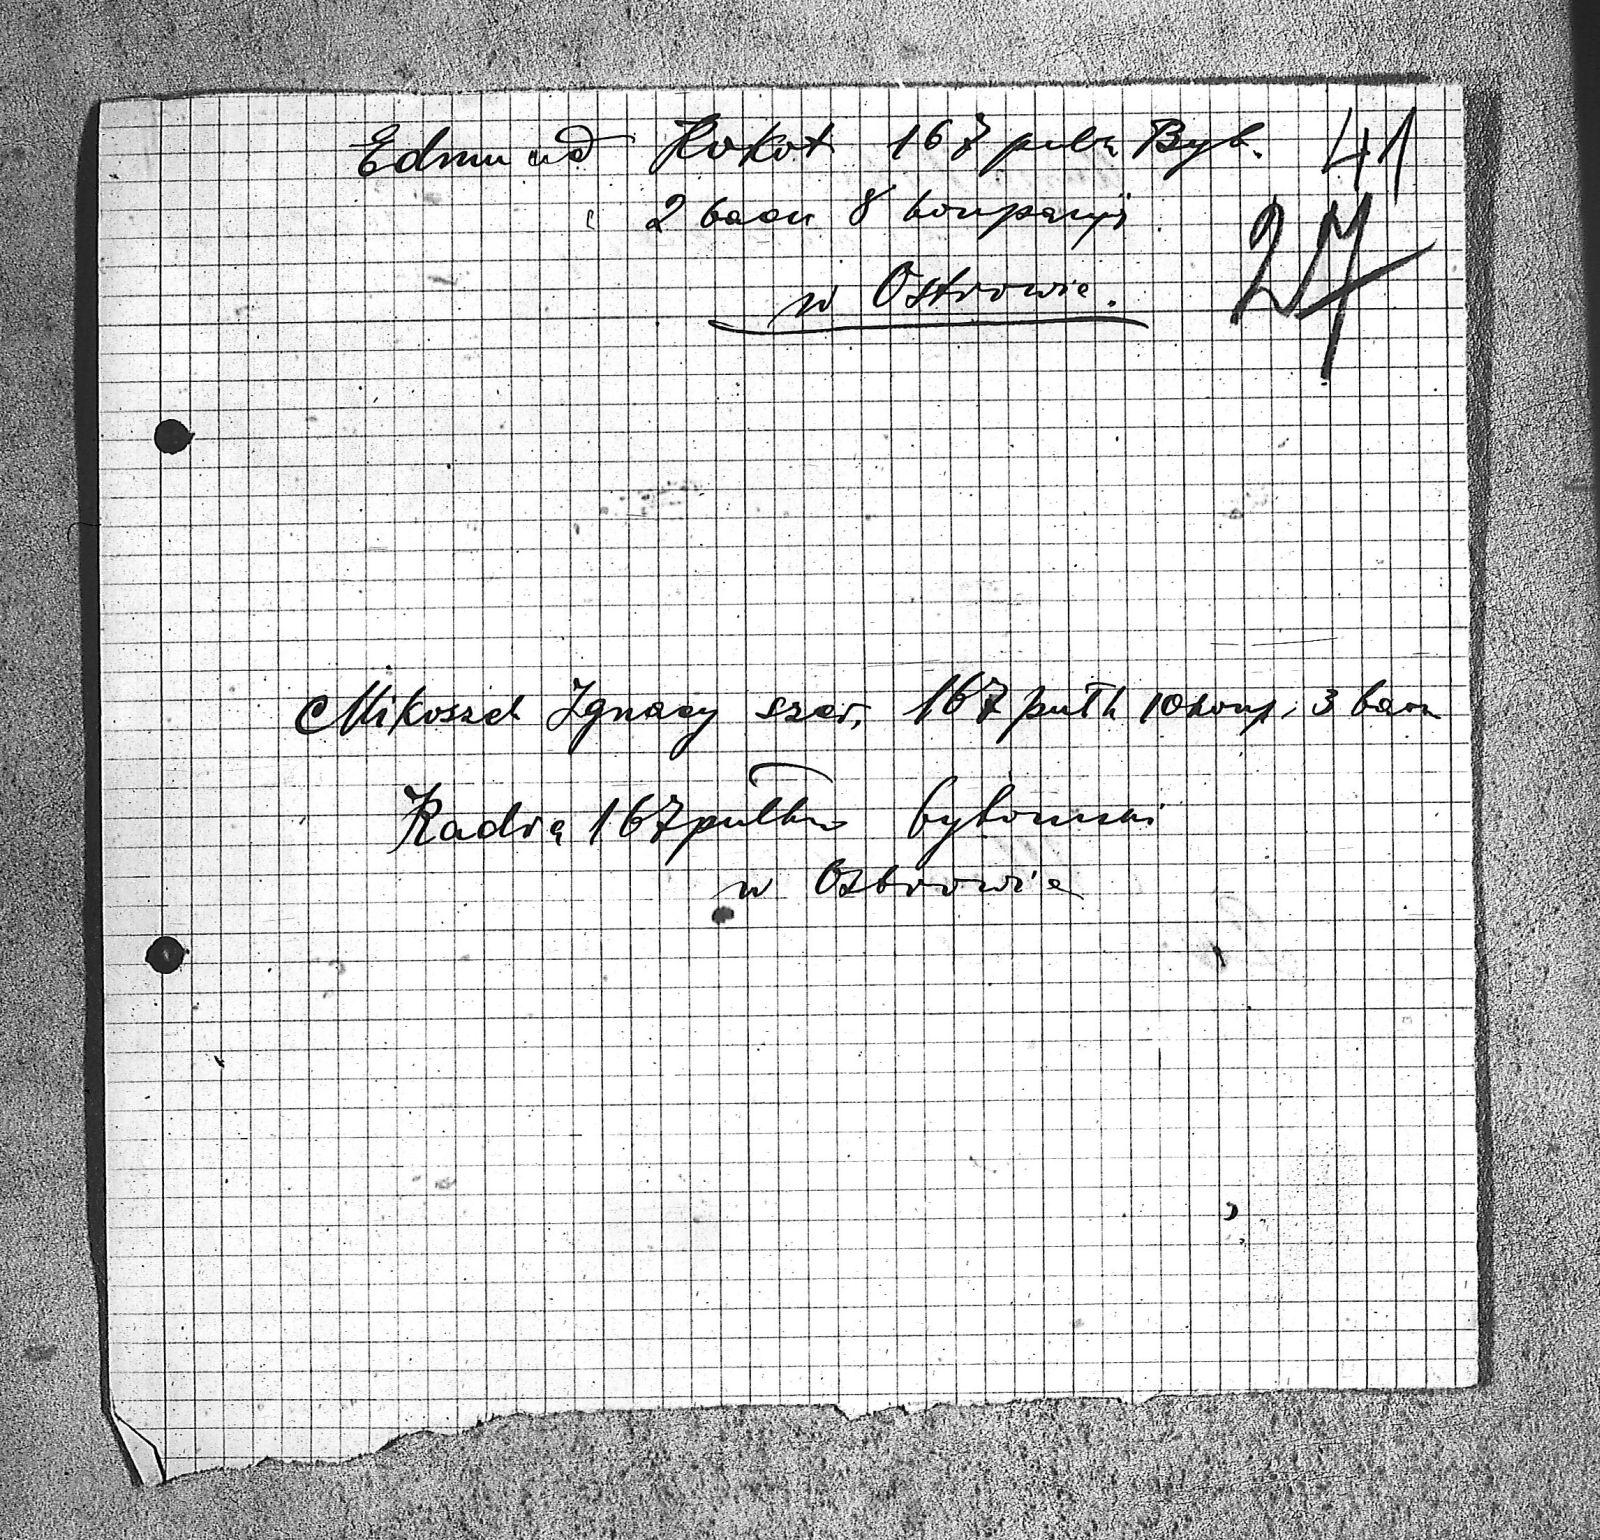 Edmund Kokot 167 pułk Byt. 41
2 baon 8 kompanji 27
w Ostrowie.
Mikosz Ignacy szer. 167 pułk 10 komp. 3 baon
Kadra 167 pułku bytomski
w Ostrowie